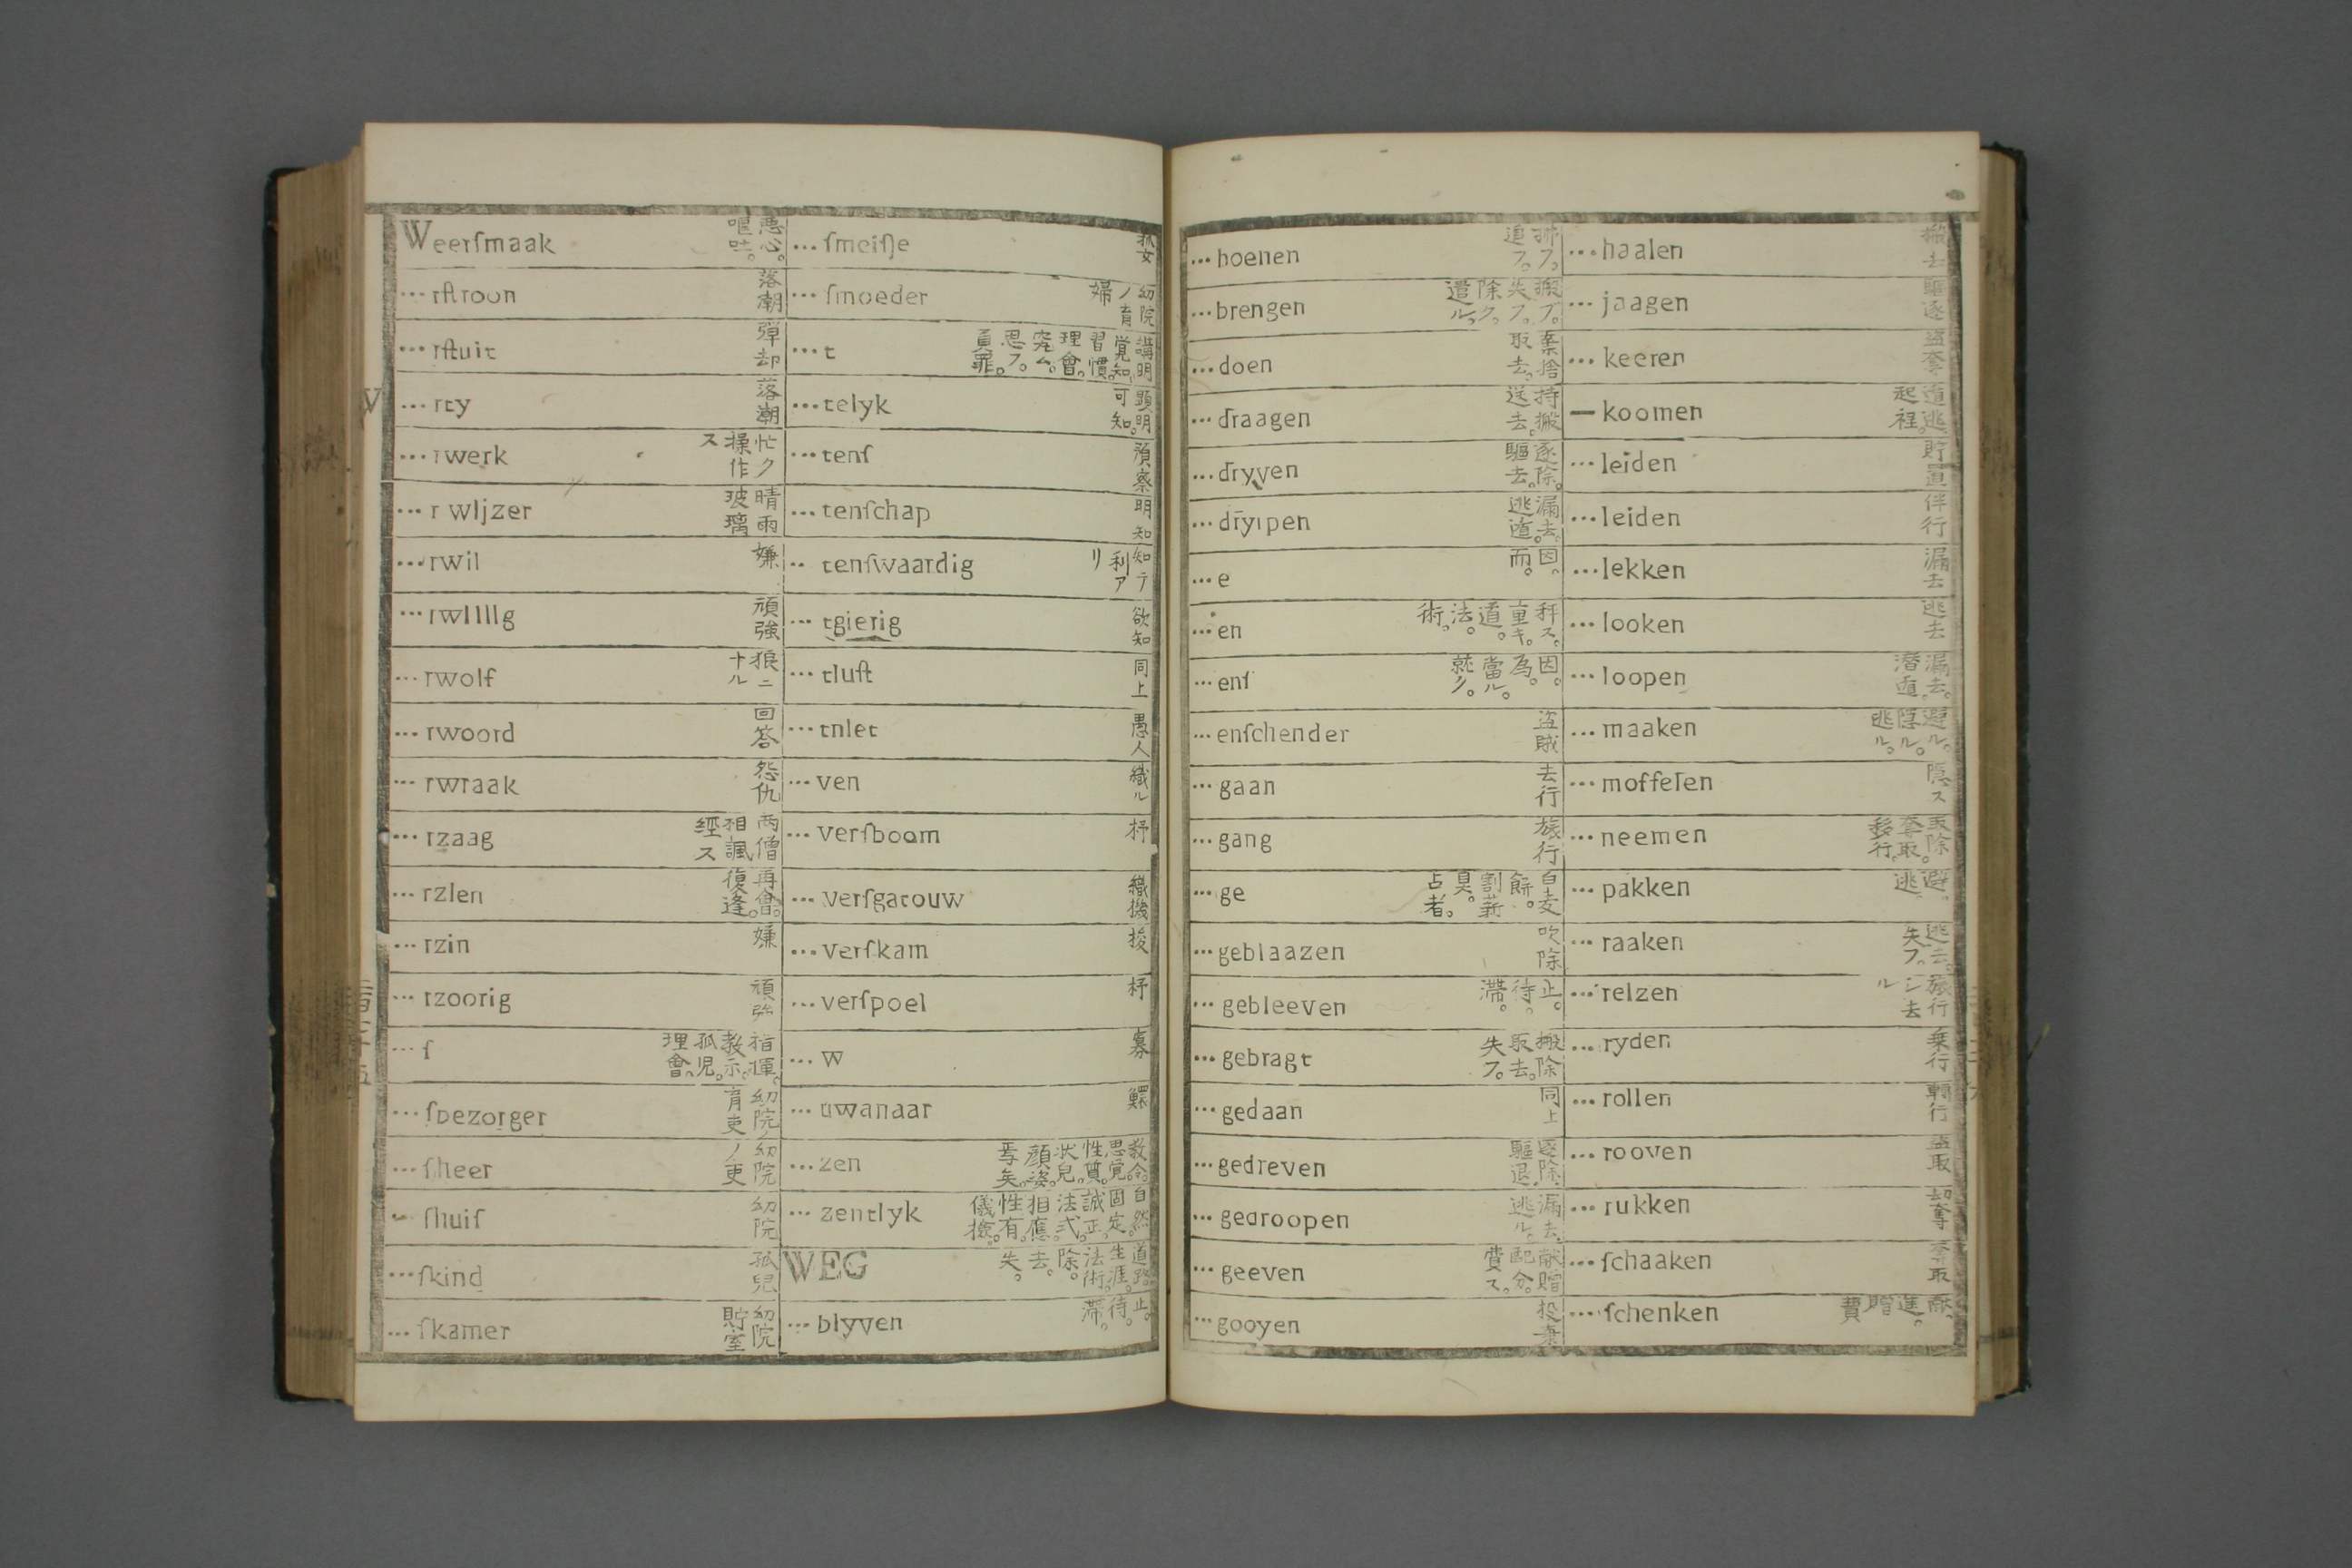 Weerſmaak 悪心。嘔吐。
... rſtroon 落潮
... rſtuit 弾却
... rty 落潮
... rwerk 忙ク操作ス
... r wljzer 晴雨玻璃
... rwil 嫌
... rwllllg 頑強
... rwolf 狼ニナル
... rwoord 回答
... rwraak 怨仇
... rzaag 両僧相諷經ス
... rzlen 再會。復逢。
... rzin 嫌
... rzoorig 頑強
... ſ 指揮。教示。孤児。理會。
... ſbezorger 幼院育吏
... ſheer 幼院ノ吏
... ſhuiſ 幼院
... ſkind 孤兒
... ſkamer 幼院貯室
... ſmeiſje 孤女
... ſmoeder 幼院ノ育婦
... t 講明覚知。習慣。理會。究ム。思フ。負罪。
... telyk 顕明可知。
... tenſ 預察
... tenſchap 明知
... tenſwaardig 知テ利アリ
... tgierig 欲知
... tluſt 同上
... tnlet 愚人
... ven 織ル
... verſboom 杼
... verſgatouw 織機
... verſkam 梭
... verſpoel 杼
... w 寡
... uwanaar 鰥
... zen 教令。思覚。性質。状皃。顔姿。焉矣。
... zentlyk 自然。固定。誠正。法式。相應。性有。儀撿。
WEG 道路。生涯。法術。除。去。失。
... blyven 止。待。滞。
... boenen 拂フ。追フ。
... brengen 搬ブ。失フ。除ク。遣ル。
... doen 棄捨取去。
... draagen 持搬送去。
... dryven 逐除。驅去。
... dryipen 漏去。逃遁。
... e 因。而。
... en 秤ス。重キ。道。法。術。
... enſ 因。為。當ル。就ク。
... enſchender 盗賊
... gaan 去行
... gang 旅行
... ge 白麦餅。割薪具。占者。
... geblaazen 吹除
... gebleeven 止。待。滞。
... gebragt 搬除取去。失フ。
... gedaan 同上
... gedreven 逐除。驅退。
... gedroopen 漏去。逃ル。
... geeven 献贈配分。費ス。
... gooyen 投棄
... haalen 搬去
... jaagen 驅逐
... keeren 盗奪
— koomen 遁逃。起程。
... leiden 貯置
... leiden 伴行
... lekken 漏去
... looken 逃去
... loopen 漏去。潜遁。
... maaken 避ル。隠ル。逃ル。
... moffelen 隠ス
... neemen 取除奪取。移行。
... pakken 避。逃
... raaken 逃去。失フ。
... relzen 旅行シ去ル
... ryden 乗行
... rollen 轉行
... rooven 盗取
... rukken 劫奪
... ſchaaken 奪取
... ſchenken 献。進。贈費